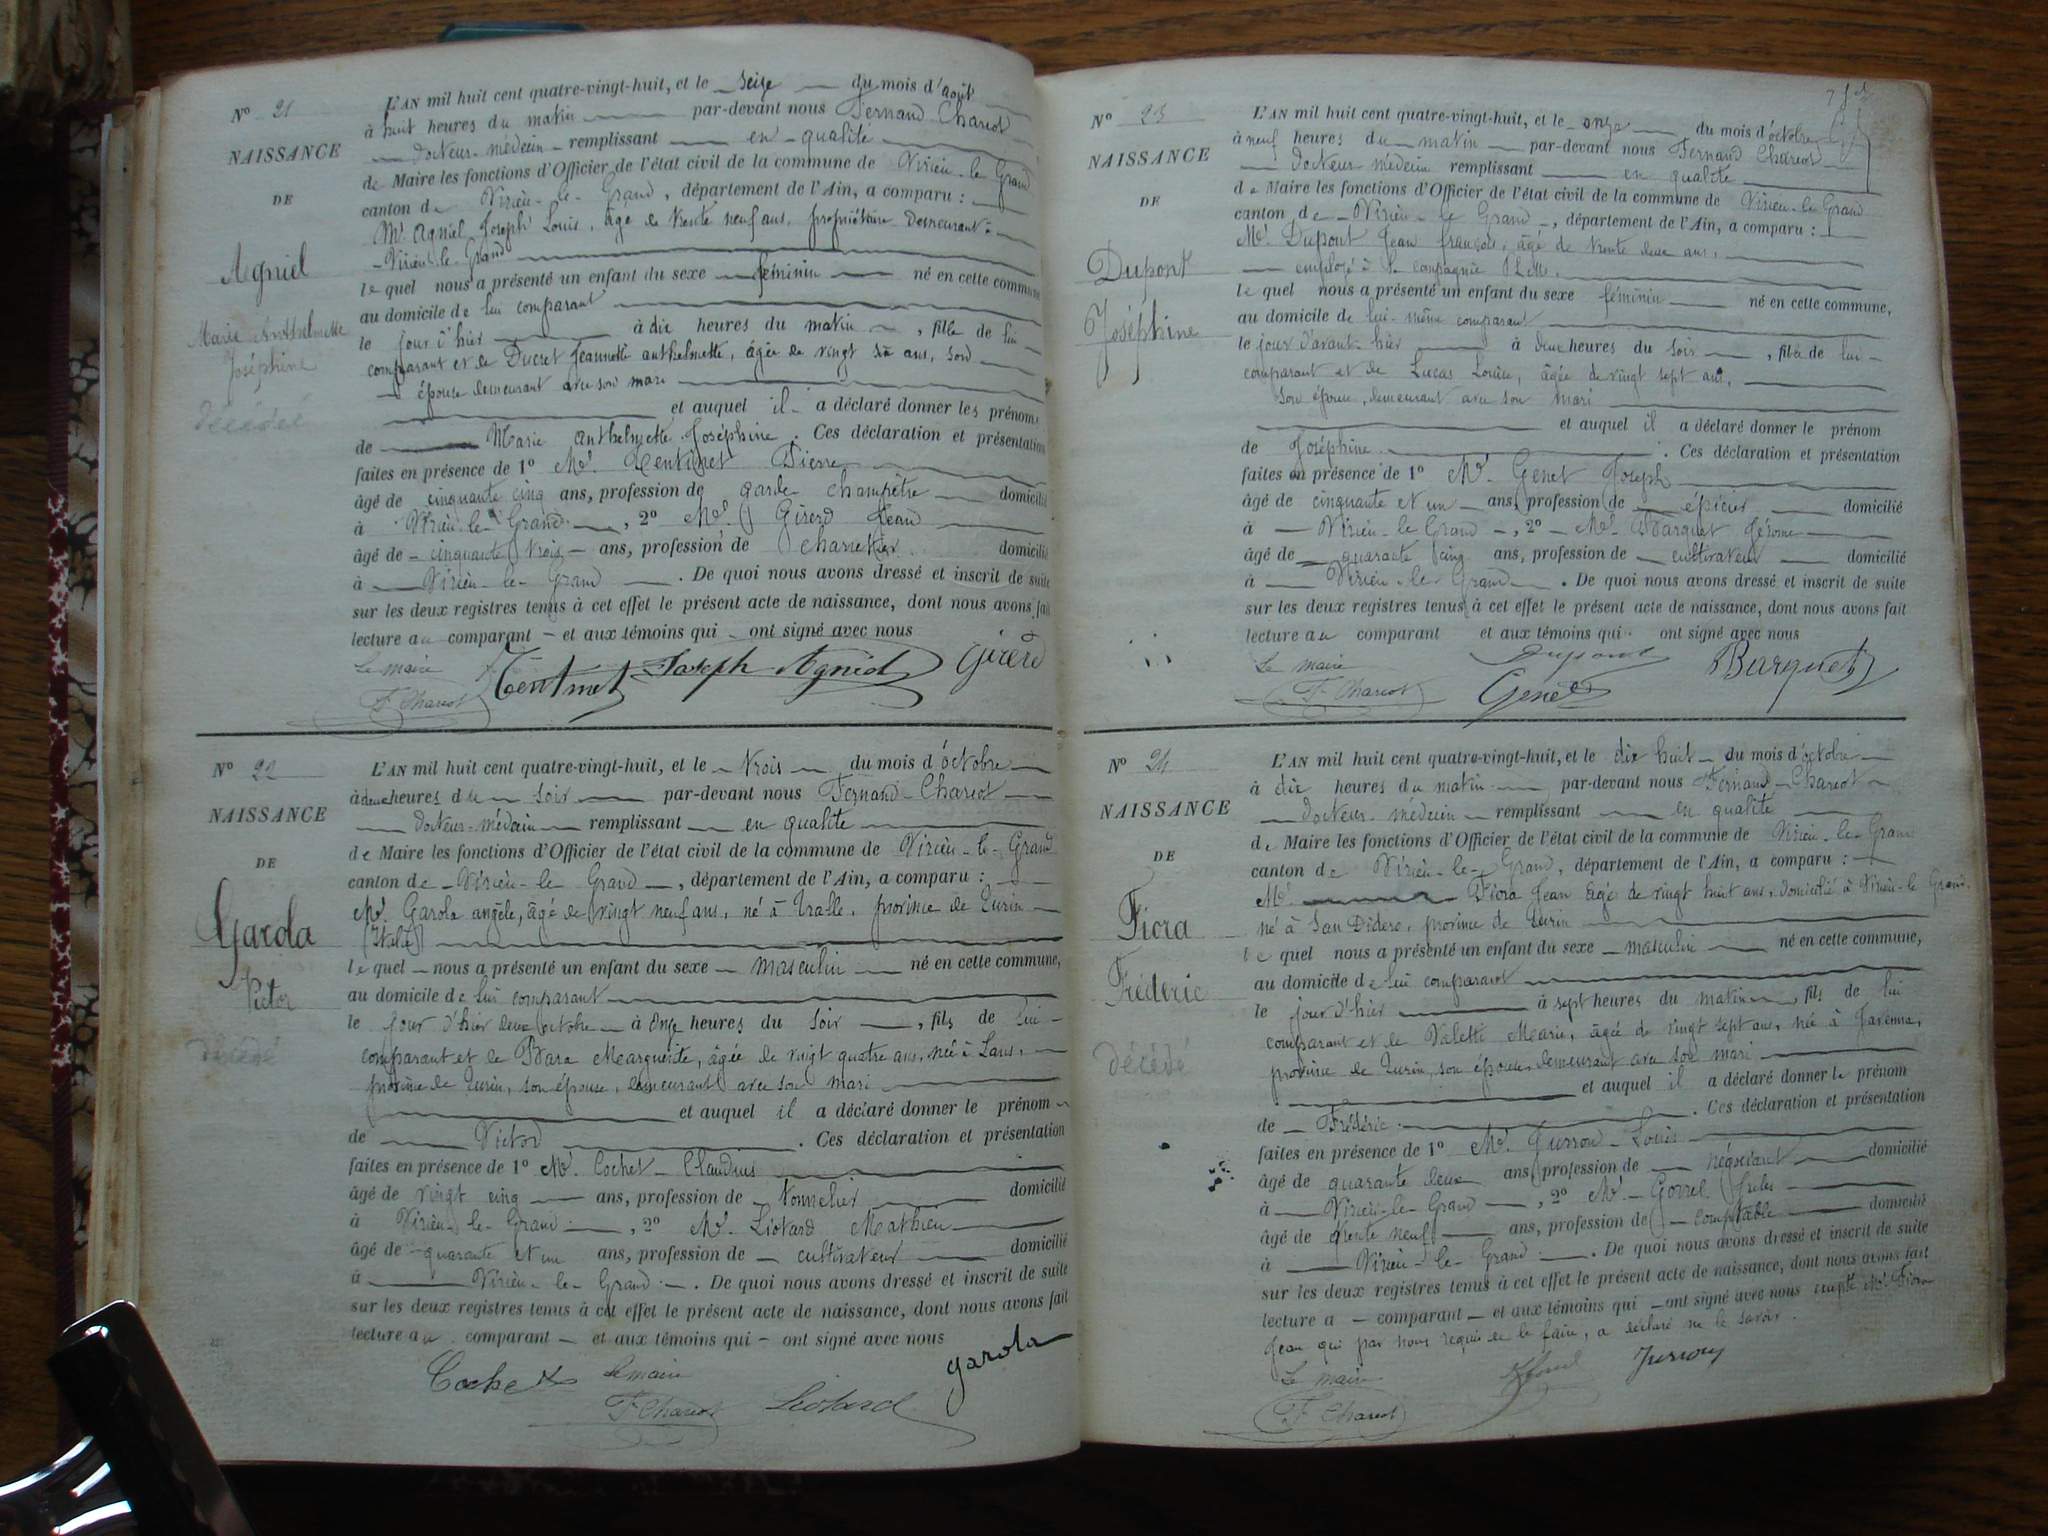 N° 21
NAISSANCE
DE
Agniel
Marie Anthelmette
Joséphine
décédée
L'AN mil huit cent quatre-vingt-huit, et le seize du mois d'août
à huit heures du matin par-devant nous Fernand Charcot
docteur-médecin remplissant en qualité
de Maire les fonctions d'Officier de l'état civil de la commune de Virieu-le-Grand
canton de Virieu-le-Grand, département de l'Ain, a comparu :
Mr. Agniel Joseph Louis, âgé de trente neuf ans, propriétaire demeurant à
Virieu-le-Grand
lequel nous a présenté un enfant du sexe féminin né en cette commune
au domicile de lui comparant
le jour d'hier à dix heures du matin, fille de lui
comparant et de Ducret Jeannette anthelmette, âgée de vingt six ans, son
épouse demeurant avec son mari
et auquel il a déclaré donner les prénoms
de Marie anthelmette Joséphine. Ces déclaration et présentation
faites en présence de 1° Mr. Tentinet Pierre
âgé de cinquante cinq ans, profession de garde champêtre domicilié
à Virieu-le-Grand, 2° Mr. Girerd Jean
âgé de cinquante trois ans, profession de charretier domicilié
à Virieu-le-Grand. De quoi nous avons dressé et inscrit de suite
sur les deux registres tenus à cet effet le présent acte de naissance, dont nous avons fait
lecture au comparant et aux témoins qui ont signé avec nous
Le maire
F Charcot Tentinet Joseph Agniel Girerd
N° 22
NAISSANCE
DE
Garola
Victor
décédé
L'AN mil huit cent quatre-vingt-huit, et le trois du mois d'octobre
à deux heures du soir par-devant nous Fernand Charcot
docteur-médecin remplissant en qualité
de Maire les fonctions d'Officier de l'état civil de la commune de Virieu-le-Grand
canton de Virieu-le-Grand, département de l'Ain, a comparu :
Mr. Garola angèle, âgé de vingt neuf ans, né à Tralle, province de Turin
(Italie)
lequel nous a présenté un enfant du sexe masculin né en cette commune,
au domicile de lui comparant
le jour d'hier deux octobre à onze heures du soir, fils de lui
comparant et de Bara Marguerite, âgée de vingt quatre ans, née à
province de Turin, son épouse, demeurant avec son mari
et auquel il a déclaré donner le prénom
de Victor. Ces déclaration et présentation
faites en présence de 1° Mr. Cochet Claudius
âgé de vingt cinq ans, profession de tonnelier domicilié
à Virieu-le-Grand, 2° Mr. Liotard Mathieu
âgé de quarante et un ans, profession de cultivateur domicilié
à Virieu-le-Grand. De quoi nous avons dressé et inscrit de suite
sur les deux registres tenus à cet effet le présent acte de naissance, dont nous avons fait
lecture au comparant et aux témoins qui ont signé avec nous
Cochet le maire garola
F Charcot Liotard
N° 23
NAISSANCE
DE
Dupont
Joséphine
L'AN mil huit cent quatre-vingt-huit, et le onze du mois d'octobre
à neuf heures du matin par-devant nous Fernand Charcot
docteur médecin remplissant en qualité
de Maire les fonctions d'Officier de l'état civil de la commune de Virieu-le-Grand
canton de Virieu-le-Grand, département de l'Ain, a comparu :
Mr. Dupont Jean françois, âgé de trente deux ans,
employé à la compagnie P.L.M.
lequel nous a présenté un enfant du sexe féminin né en cette commune,
au domicile de lui-même comparant
le jour d'avant-hier à deux heures du soir, fille de lui
comparant et de Lucas Louise, âgée de vingt sept ans,
son épouse, demeurant avec son mari
et auquel il a déclaré donner le prénom
de Joséphine. Ces déclaration et présentation
faites en présence de 1° Mr. Genet Joseph
âgé de cinquante et un ans, profession de épicier domicilié
à Virieu-le-Grand, 2° Mr. Barquet Jérôme
âgé de quarante cinq ans, profession de cultivateur domicilié
à Virieu-le-Grand. De quoi nous avons dressé et inscrit de suite
sur les deux registres tenus à cet effet le présent acte de naissance, dont nous avons fait
lecture au comparant et aux témoins qui ont signé avec nous
Le maire Dupont Barquet
F Charcot Genet
N° 24
NAISSANCE
DE
Fiora
Fréderic
décédé
L'AN mil huit cent quatre-vingt-huit, et le dix huit du mois d'octobre
à dix heures du matin par-devant nous Fernand Charcot
docteur médecin remplissant en qualité
de Maire les fonctions d'Officier de l'état civil de la commune de Virieu-le-Grand
canton de Virieu-le-Grand, département de l'Ain, a comparu :
Mr. Fiora Jean âgé de vingt huit ans, domicilié à Virieu-le-Grand,
né à San Didero, province de Turin
lequel nous a présenté un enfant du sexe masculin né en cette commune,
au domicile de lui comparant
le jour d'hier à sept heures du matin, fils de lui
comparant et de Valetti Marie, âgée de vingt sept ans, née à Javenna,
province de Turin, son épouse demeurant avec son mari
et auquel il a déclaré donner le prénom
de Fréderic. Ces déclaration et présentation
faites en présence de 1° Mr. Jusson Louis
âgé de quarante deux ans, profession de négociant domicilié
à Virieu-le-Grand, 2° Mr. Jules
âgé de trente neuf ans, profession de comptable domicilié
à Virieu-le-Grand. De quoi nous avons dressé et inscrit de suite
sur les deux registres tenus à cet effet le présent acte de naissance, dont nous avons fait
lecture a comparant et aux témoins qui ont signé avec nous excepté Mr. Fiora
Jean qui par nous requis de le faire, a déclaré ne le savoir.
Le maire
F Charcot